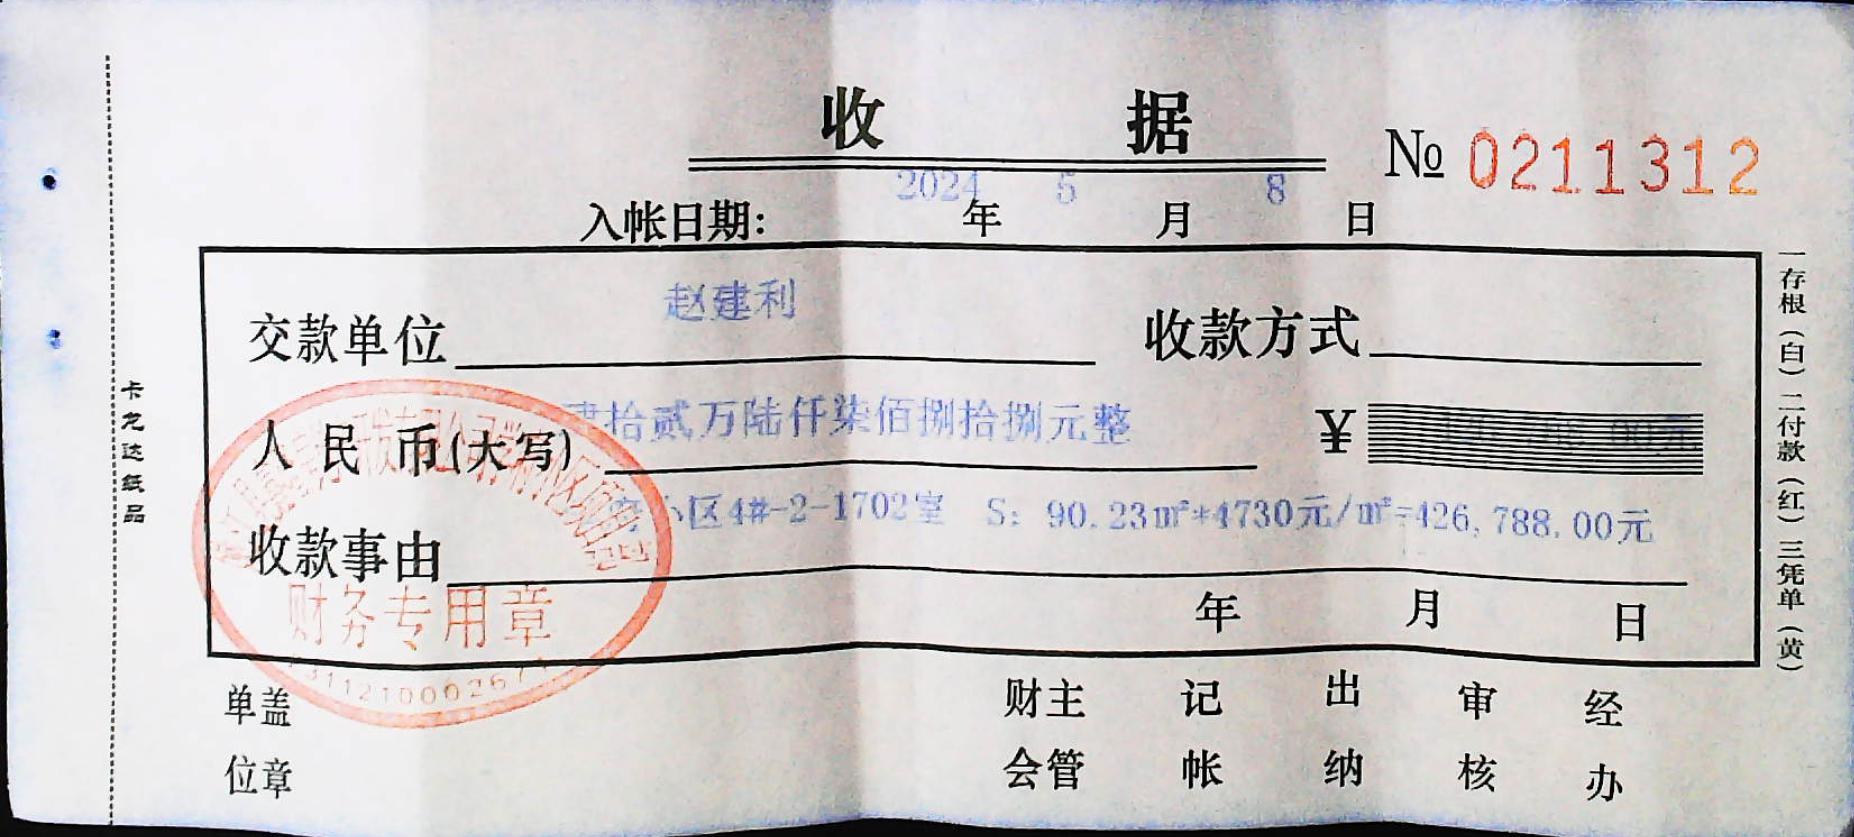 收 据
№ 0211312
入帐日期: 2024 年 5 月 8 日
交款单位 赵建利 收款方式
人民币(大写) 肆拾贰万陆仟柒佰捌拾捌元整 ¥ 00元
收款事由 小区4#-2-1702室 S: 90.23㎡*4730元/㎡=426,788.00元
年 月 日
财务专用章
单位盖章 财会主管 记帐 出纳 审核 经办
卡龙达纸品
一存根(白)二付款(红)三凭单(黄)